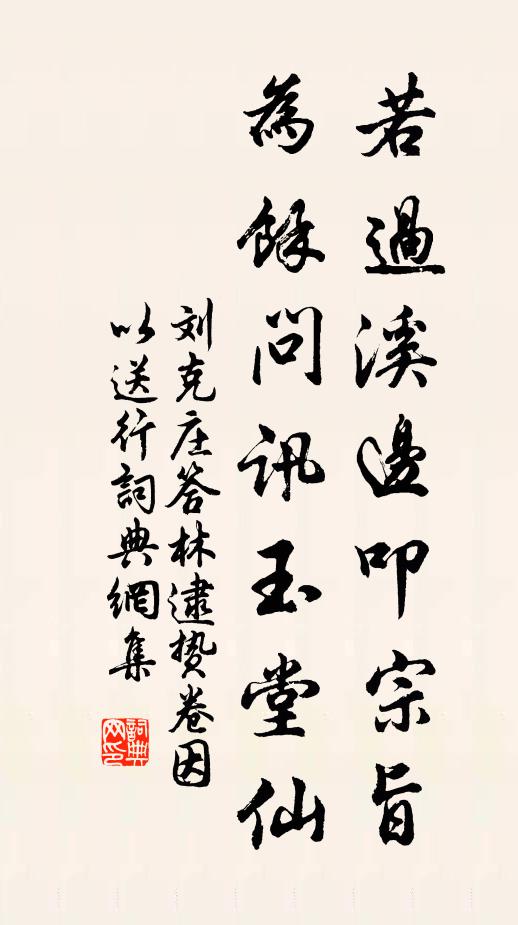 若過溪邊叩宗旨
為餘問訊玉堂仙
刘克庄答林逮贽卷因
以送行詞典網集
詞典網印